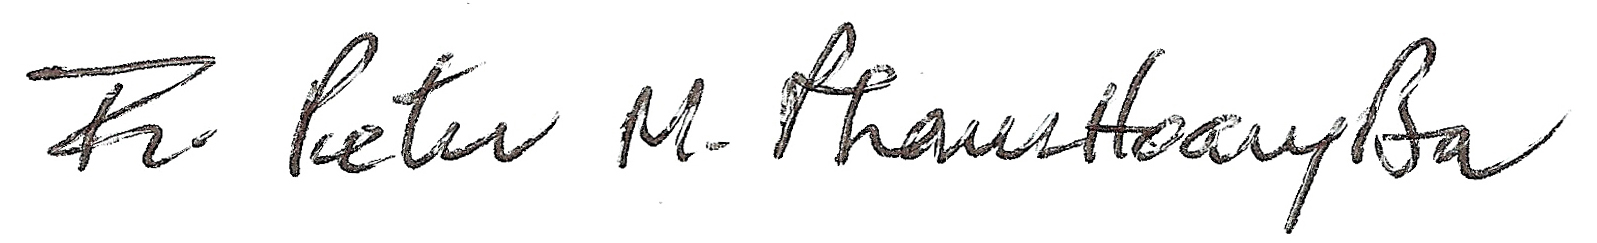 Fr. Peter M. Pham Hoang Ba